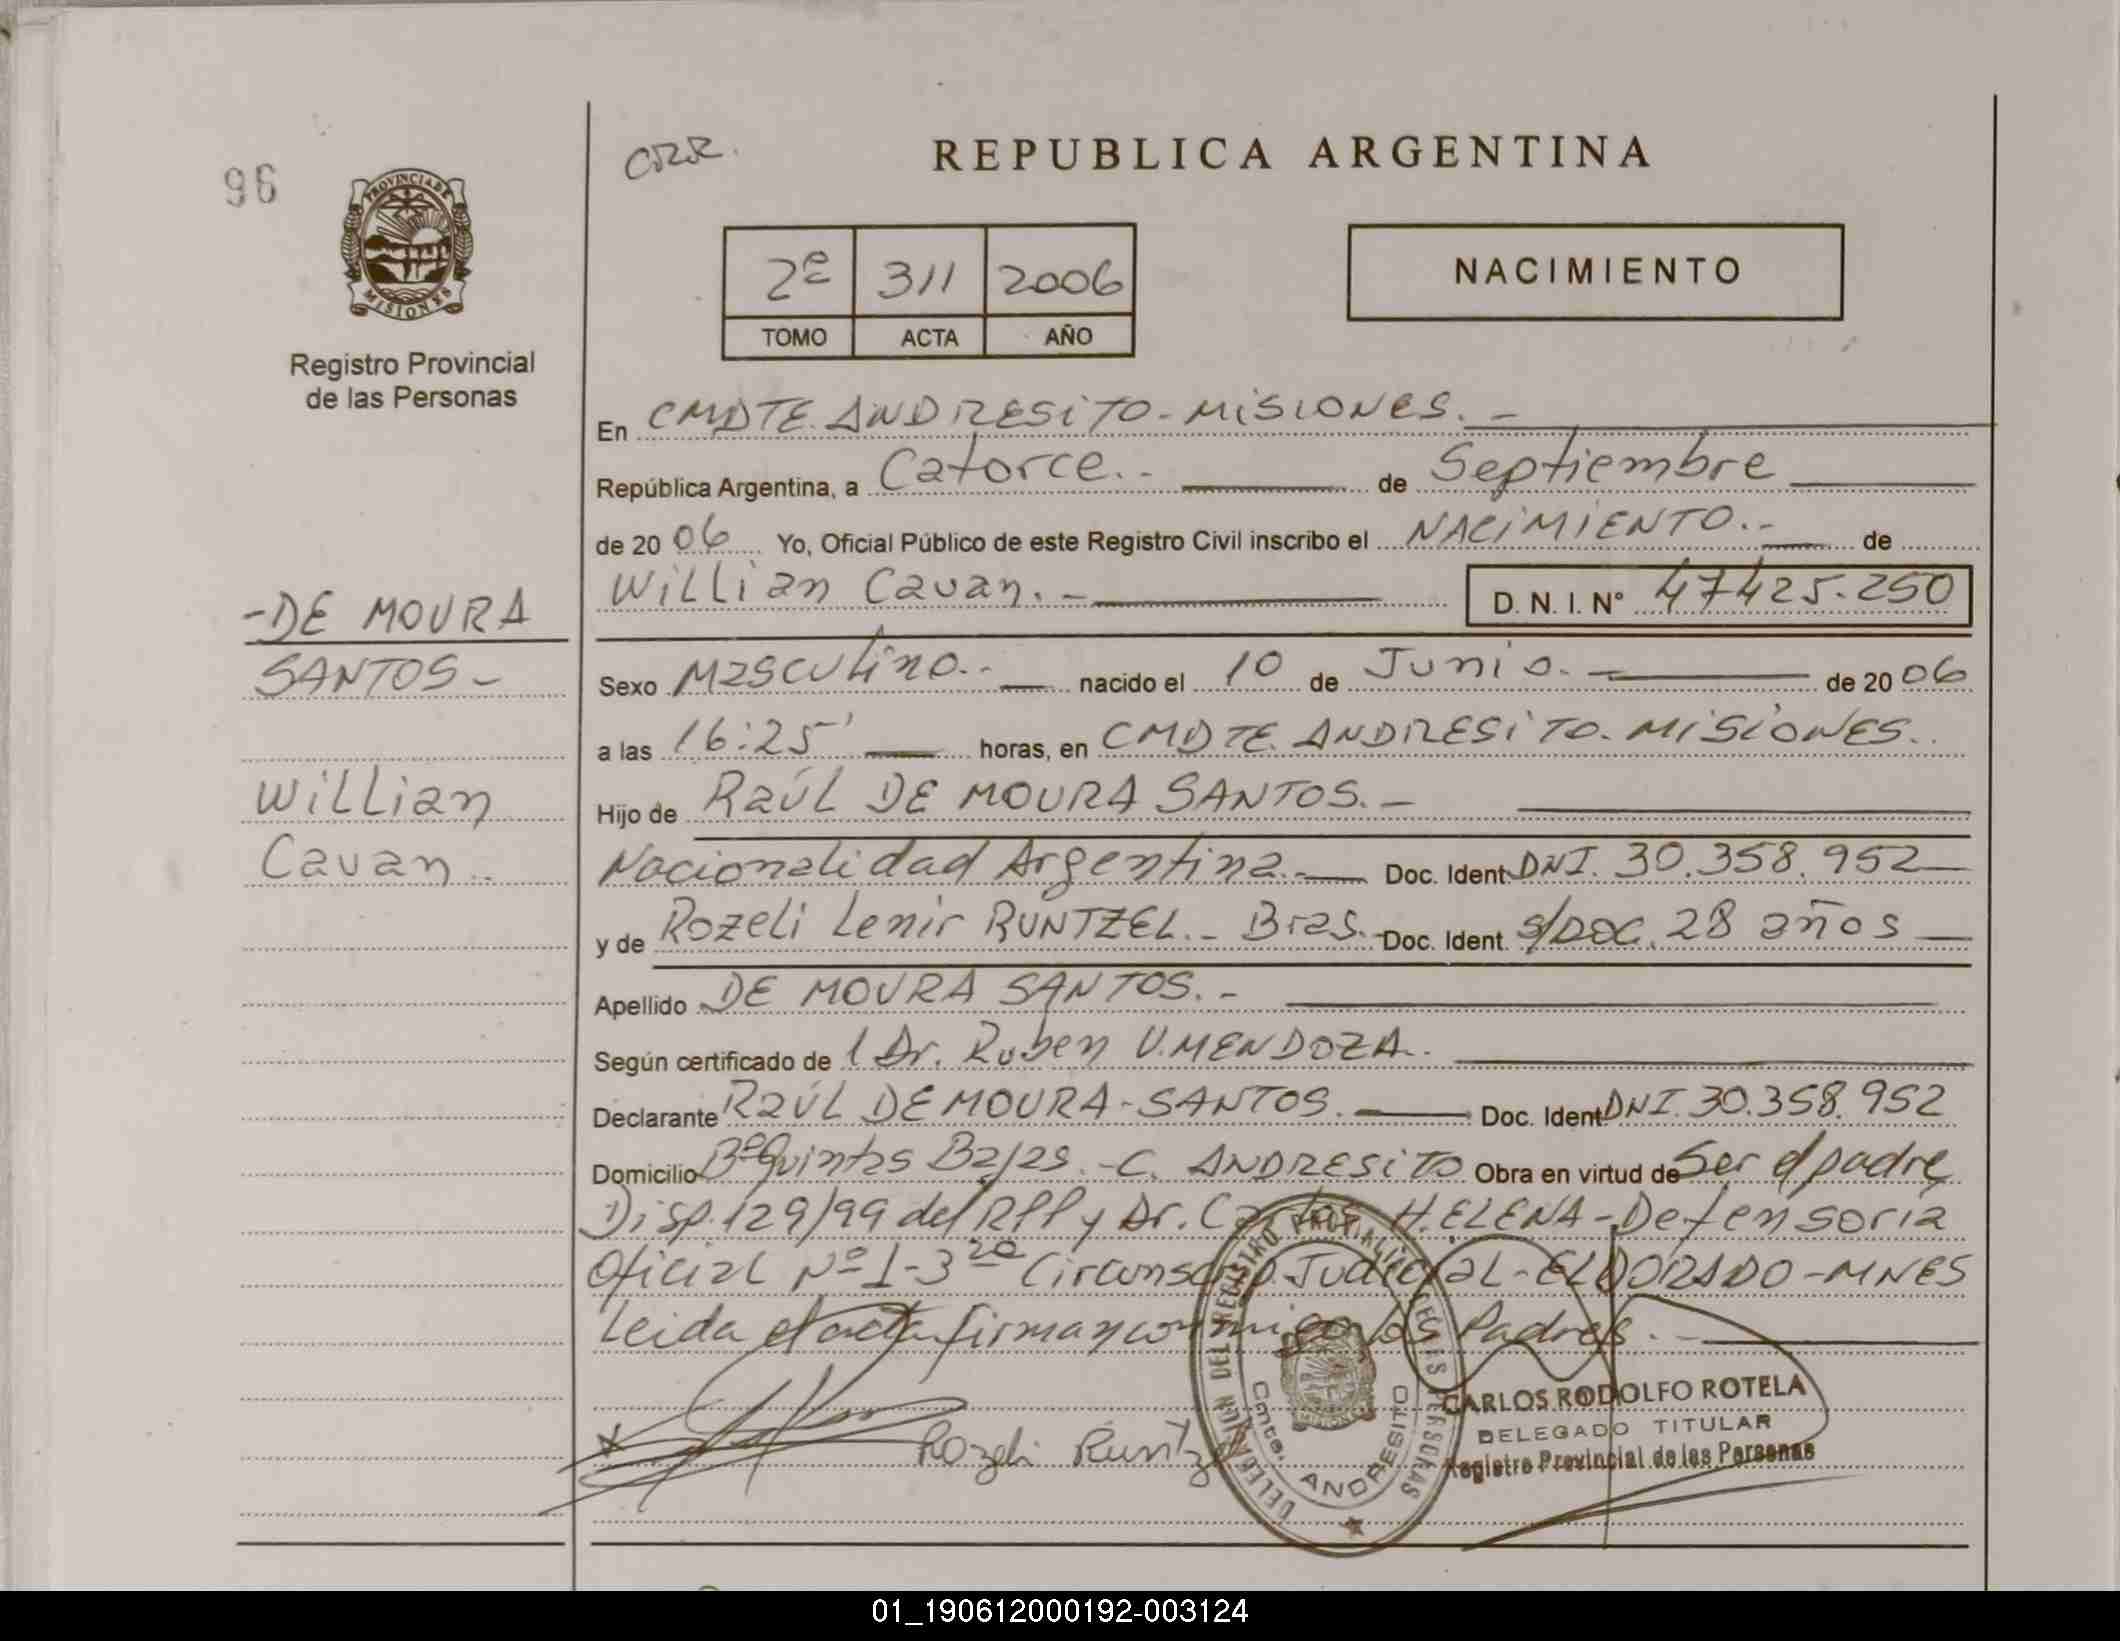 96
PROVINCIA DE
MISIONES
Registro Provincial
de las Personas
CRR.
REPUBLICA ARGENTINA
2º 311 2006
TOMO ACTA AÑO
NACIMIENTO
En CMDTE. ANDRESITO - MISIONES. -
República Argentina, a Catorce.- de Septiembre
de 20 06 Yo, Oficial Público de este Registro Civil inscribo el NACIMIENTO.- de
Willian Cavan. - D. N. I. Nº 47425.250
-DE MOURA
SANTOS-
Willian
Cavan..
Sexo Masculino.- nacido el 10 de Junio. - de 20 06
a las 16:25' horas, en CMDTE. ANDRESITO. MISIONES..
Hijo de Raúl DE MOURA SANTOS. -
Nacionalidad Argentina.- Doc. Ident. DNI. 30.358.952
y de Rozeli Lenir RUNTZEL. - Bras. - Doc. Ident. S/DOC. 28 años
Apellido DE MOURA SANTOS. -
Según certificado de 1 Dr. Ruben V. MENDOZA.
Declarante Raúl DE MOURA-SANTOS. Doc. Ident. DNI. 30.358.952
Domicilio Bº Quintas Bajas. - C. ANDRESITO Obra en virtud de Ser el padre
Disp. 129/99 del RPP y Dr. Carlos H. ELENA - Defensoria
Oficial Nº 1-3ra Circunscrip. Judicial - ELDORADO - MNES
Leida el acta firman conmigo los Padres. -
Rozeli Runtzel
DELEGACION DEL REGISTRO PROVINCIAL DE LAS PERSONAS
Cmte. ANDRESITO
CARLOS RODOLFO ROTELA
DELEGADO TITULAR
Registro Provincial de las Personas
01_190612000192-003124